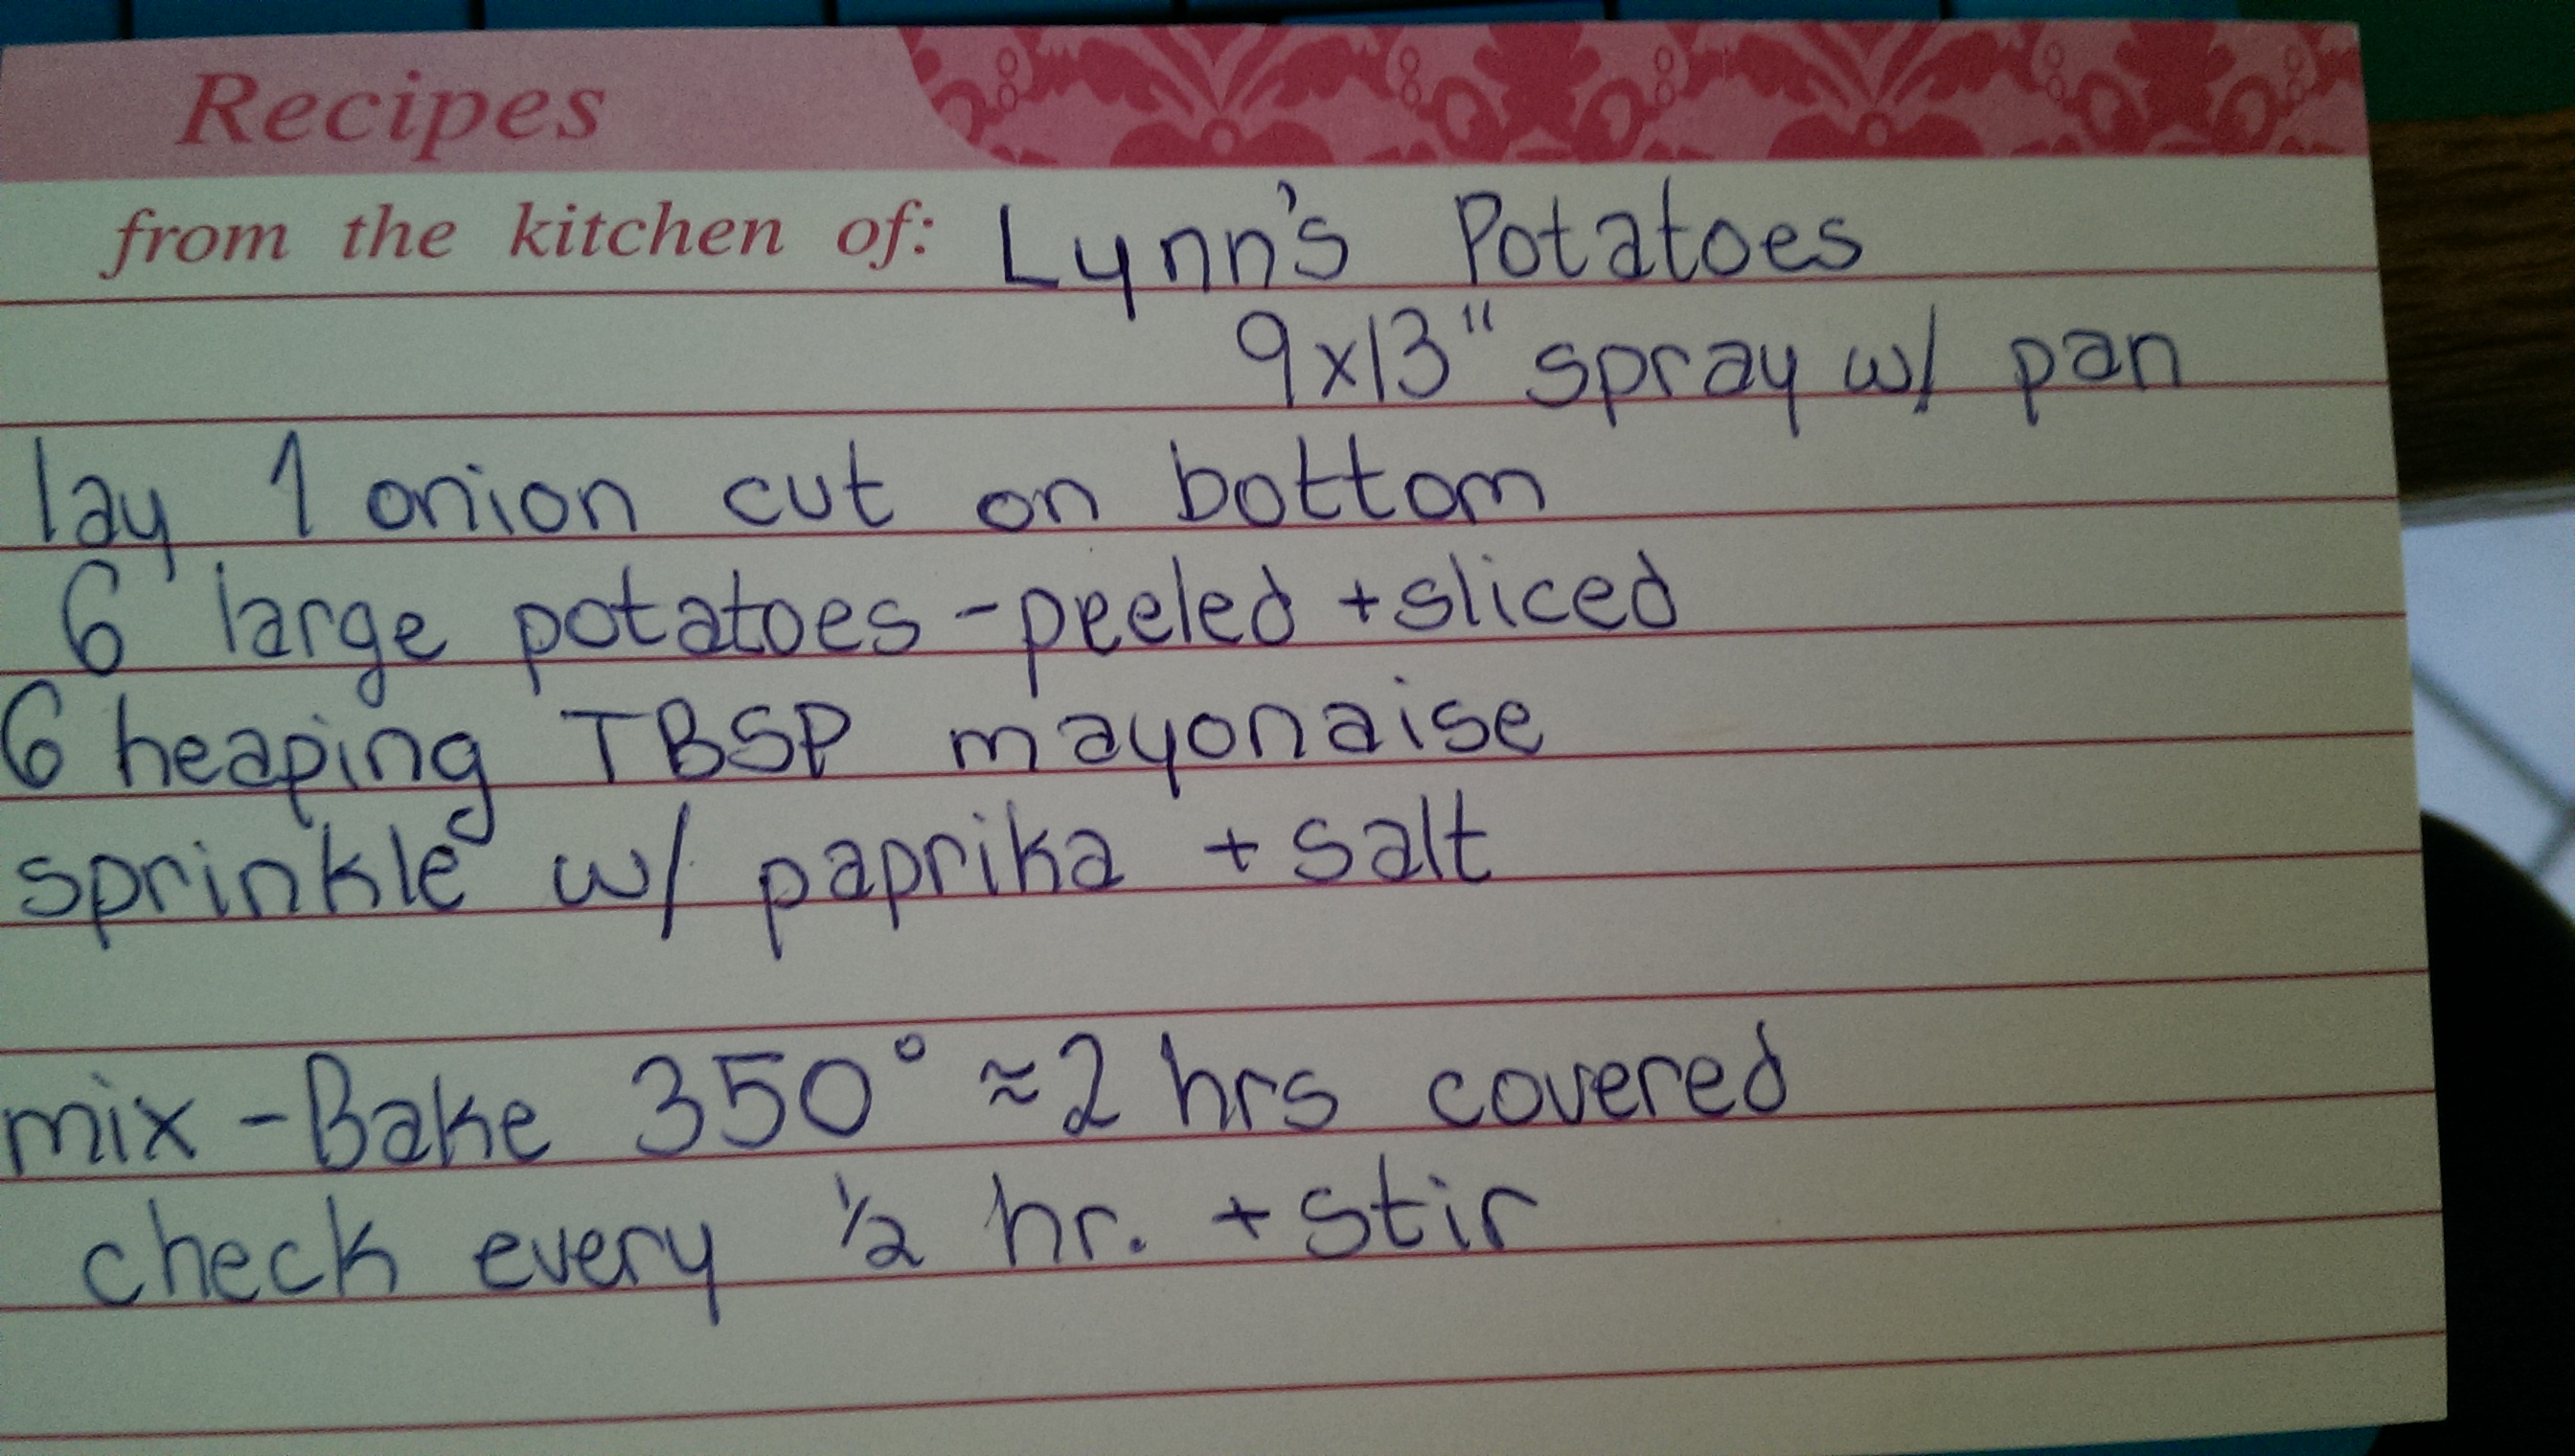 Recipes
from the kitchen of: Lynn's Potatoes
9x13" spray w/ pan
lay 1 onion cut on bottom
6 large potatoes - peeled + sliced
6 heaping TBSP mayonaise
sprinkle w/ paprika + salt
mix - Bake 350° ≈ 2 hrs covered
check every ½ hr. + stir